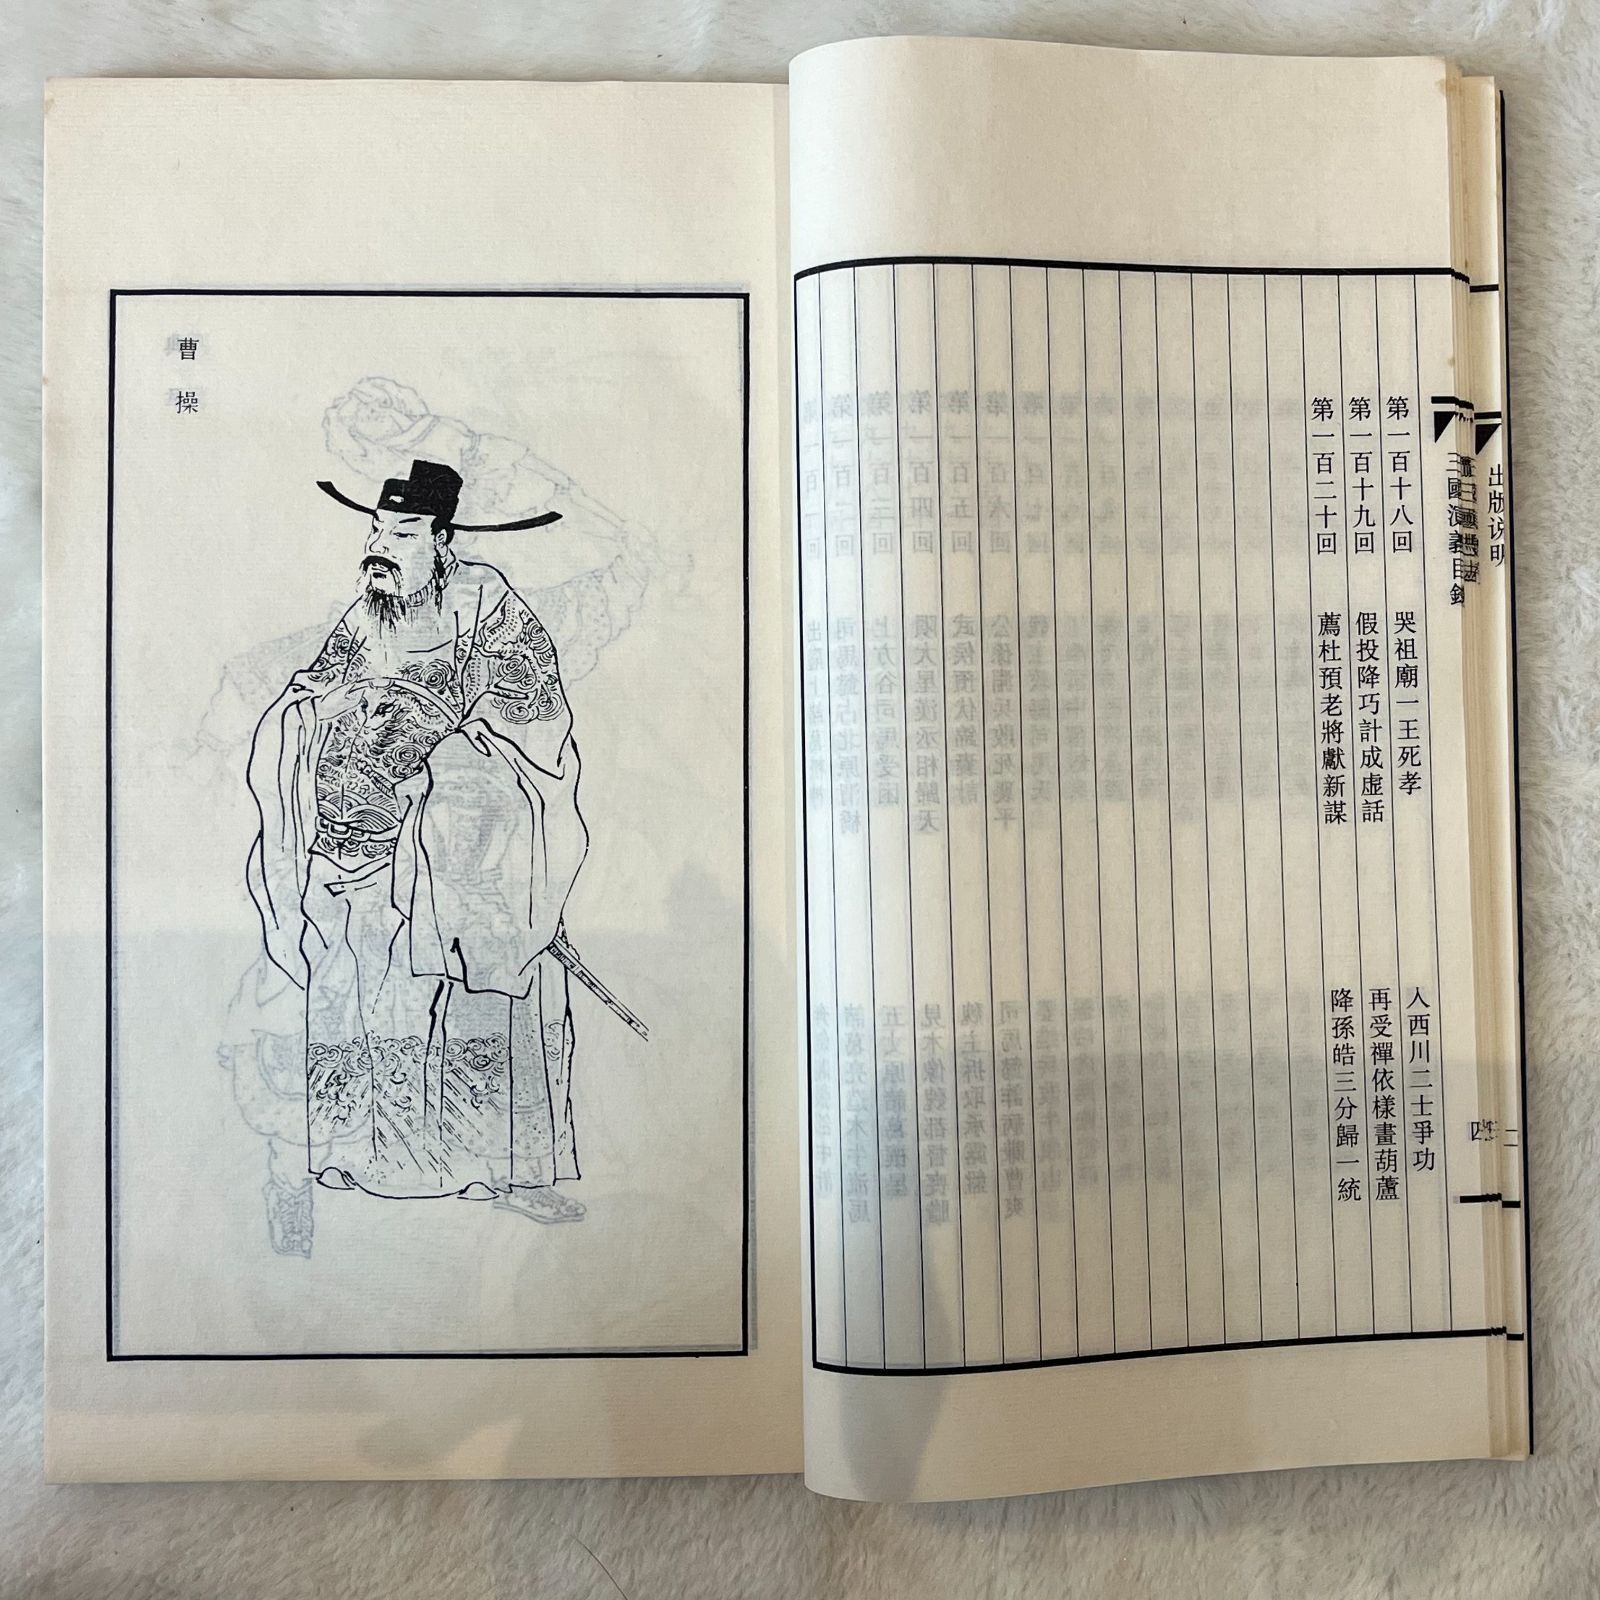 出版说明
三國演義目錄
四
第一百十八回 哭祖廟一王死孝 入西川二士爭功
第一百十九回 假投降巧計成虛話 再受禪依樣畫葫蘆
第一百二十回 薦杜預老將獻新謀 降孫皓三分歸一統
曹操